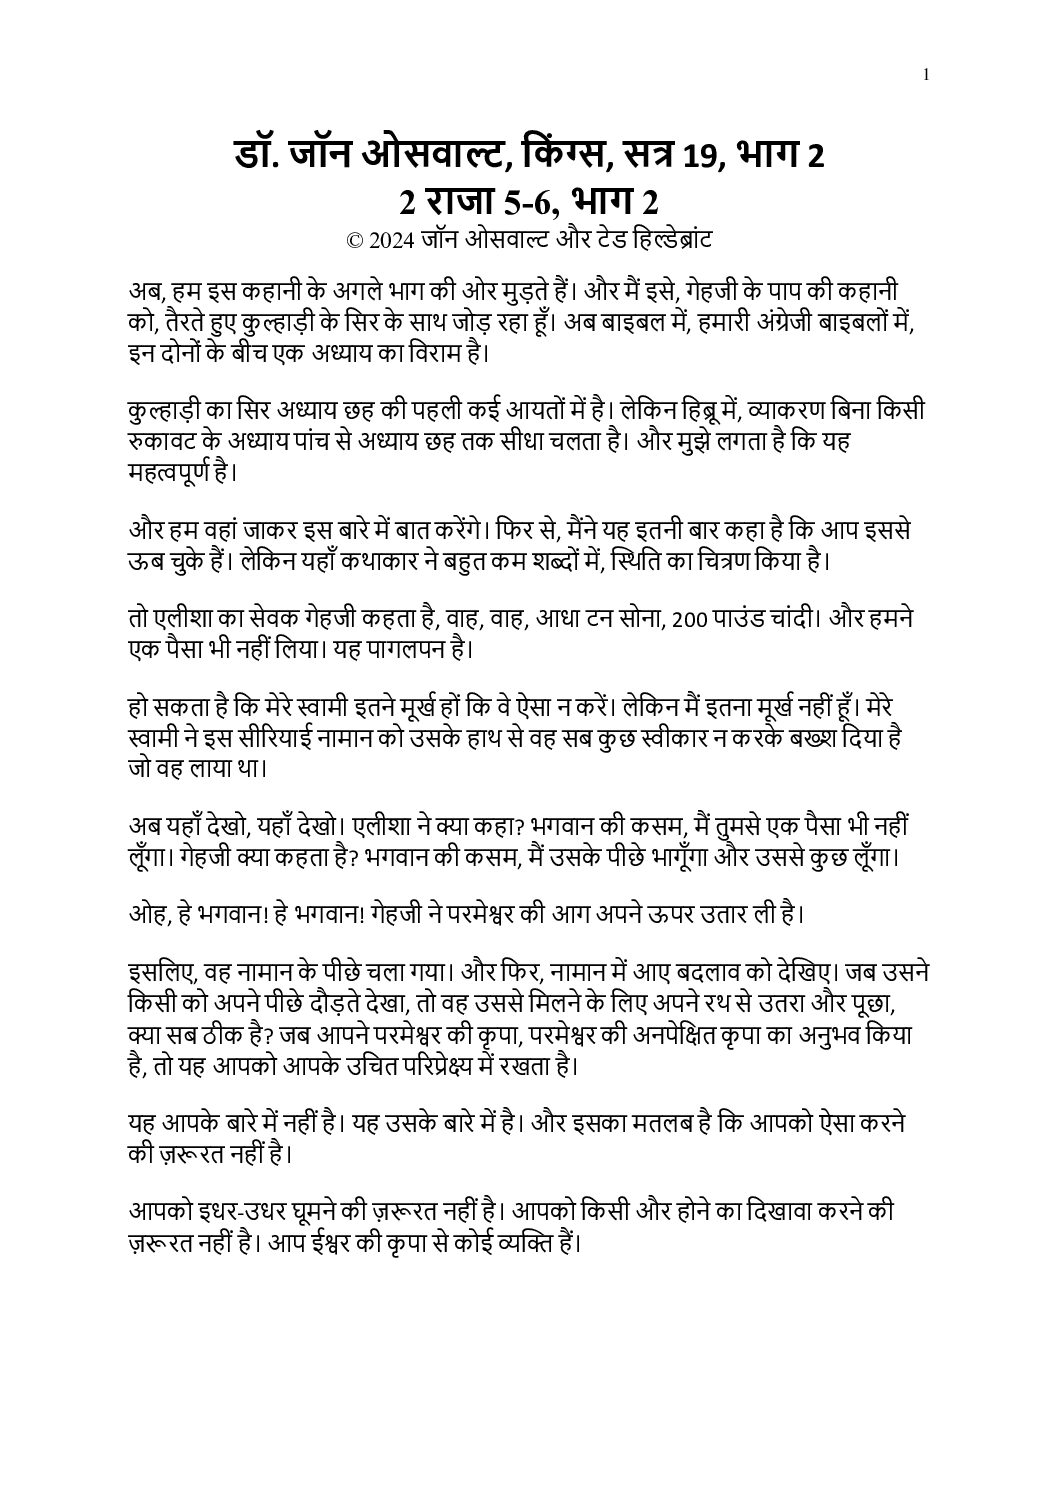 1
डॉ. जॉन ओसवाल्ट, किंग्स, सत्र 19, भाग 2
2 राजा 5-6, भाग 2
© 2024 जॉन ओसवाल्ट और टेड हिल्डेब्रांट
अब, हम इस कहानी के अगले भाग की ओर मुड़ते हैं। और मैं इसे, गेहजी के पाप की कहानी
को, तैरते हुए कुल्हाड़ी के सिर के साथ जोड़ रहा हूँ। अब बाइबल में, हमारी अंग्रेजी बाइबलों में,
इन दोनों के बीच एक अध्याय का विराम है।
कुल्हाड़ी का सिर अध्याय छह की पहली कई आयतों में है। लेकिन हिब्रू में, व्याकरण बिना किसी
रुकावट के अध्याय पांच से अध्याय छह तक सीधा चलता है। और मुझे लगता है कि यह
महत्वपूर्ण है।
और हम वहां जाकर इस बारे में बात करेंगे। फिर से, मैंने यह इतनी बार कहा है कि आप इससे
ऊब चुके हैं। लेकिन यहाँ कथाकार ने बहुत कम शब्दों में, स्थिति का चित्रण किया है।
तो एलीशा का सेवक गेहजी कहता है, वाह, वाह, आधा टन सोना, 200 पाउंड चांदी। और हमने
एक पैसा भी नहीं लिया। यह पागलपन है।
हो सकता है कि मेरे स्वामी इतने मूर्ख हों कि वे ऐसा न करें। लेकिन मैं इतना मूर्ख नहीं हूँ। मेरे
स्वामी ने इस सीरियाई नामान को उसके हाथ से वह सब कुछ स्वीकार न करके बख्श दिया है
जो वह लाया था।
अब यहाँ देखो, यहाँ देखो। एलीशा ने क्या कहा? भगवान की कसम, मैं तुमसे एक पैसा भी नहीं
लूँगा। गेहजी क्या कहता है? भगवान की कसम, मैं उसके पीछे भागूँगा और उससे कुछ लूँगा।
ओह, हे भगवान! हे भगवान! गेहजी ने परमेश्वर की आग अपने ऊपर उतार ली है।
इसलिए, वह नामान के पीछे चला गया। और फिर, नामान में आए बदलाव को देखिए। जब उसने
किसी को अपने पीछे दौड़ते देखा, तो वह उससे मिलने के लिए अपने रथ से उतरा और पूछा,
क्या सब ठीक है? जब आपने परमेश्वर की कृपा, परमेश्वर की अनपेक्षित कृपा का अनुभव किया
है, तो यह आपको आपके उचित परिप्रेक्ष्य में रखता है।
यह आपके बारे में नहीं है। यह उसके बारे में है। और इसका मतलब है कि आपको ऐसा करने
की ज़रूरत नहीं है।
आपको इधर-उधर घूमने की ज़रूरत नहीं है। आपको किसी और होने का दिखावा करने की
ज़रूरत नहीं है। आप ईश्वर की कृपा से कोई व्यक्ति हैं।